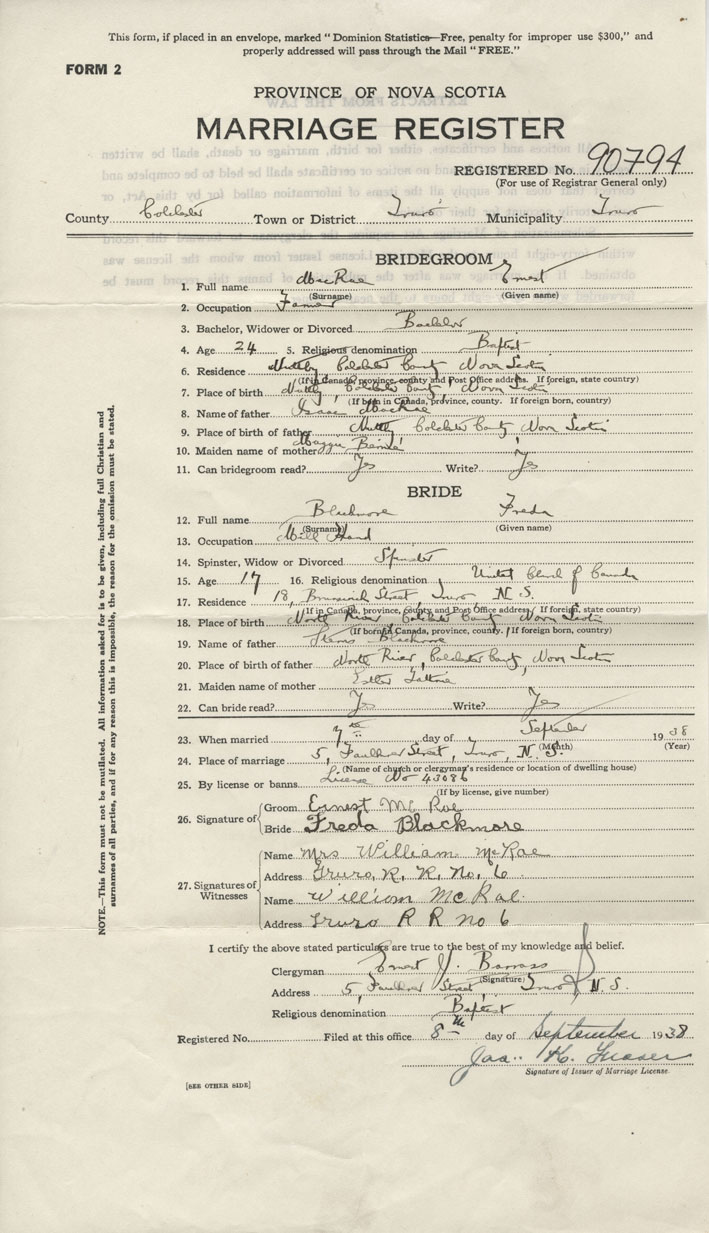 This form, if placed in an envelope, marked "Dominion Statistics—Free, penalty for improper use $300," and
properly addressed will pass through the Mail "FREE."
FORM 2
PROVINCE OF NOVA SCOTIA
MARRIAGE REGISTER
REGISTERED No. 90794
(For use of Registrar General only)
County Colchester Town or District Truro Municipality Truro
BRIDEGROOM
1. Full name MacRae Ernest
(Surname) (Given name)
2. Occupation Farmer
3. Bachelor, Widower or Divorced Bachelor
4. Age 24 5. Religious denomination Baptist
6. Residence Nuttby Colchester County Nova Scotia
(If in Canada, province, county and Post Office address. If foreign, state country)
7. Place of birth Nuttby, Colchester County, Nova Scotia
(If born in Canada, province, county. If foreign born, country)
8. Name of father Isaac MacRae
9. Place of birth of father Nuttby Colchester County, Nova Scotia
10. Maiden name of mother Maggie
11. Can bridegroom read? Yes Write? Yes
BRIDE
12. Full name Blackmore Freda
(Surname) (Given name)
13. Occupation Mill Hand
14. Spinster, Widow or Divorced Spinster
15. Age 17 16. Religious denomination United Church of Canada
17. Residence 18, Brunswick Street, Truro N. S.
(If in Canada, province, county and Post Office address. If foreign, state country)
18. Place of birth North River, Colchester County, Nova Scotia
(If born in Canada, province, county. If foreign born, country)
19. Name of father Blackmore
20. Place of birth of father North River, Colchester County, Nova Scotia
21. Maiden name of mother Esther
22. Can bride read? Yes Write? Yes
23. When married 7th day of September 1938
(Month) (Year)
24. Place of marriage 5, Faulkner Street, Truro, N. S.
(Name of church or clergyman's residence or location of dwelling house)
25. By license or banns License No 43086
(If by license, give number)
26. Signature of Groom Ernest Mc Rae
Bride Freda Blackmore
27. Signatures of Witnesses
Name Mrs William McRae
Address Truro, R. R. No, 6
Name William McRae.
Address Truro R R no 6
I certify the above stated particulars are true to the best of my knowledge and belief.
Clergyman Ernest J. Barrass
(Signature)
Address 5, Faulkner Street, Truro, N. S.
Religious denomination Baptist
Registered No. Filed at this office 8th day of September 1938
Jas. K. Fraser
Signature of Issuer of Marriage License.
[SEE OTHER SIDE]
NOTE.—This form must not be mutilated. All information asked for is to be given, including full Christian and
surnames of all parties, and if for any reason this is impossible, the reason for the omission must be stated.